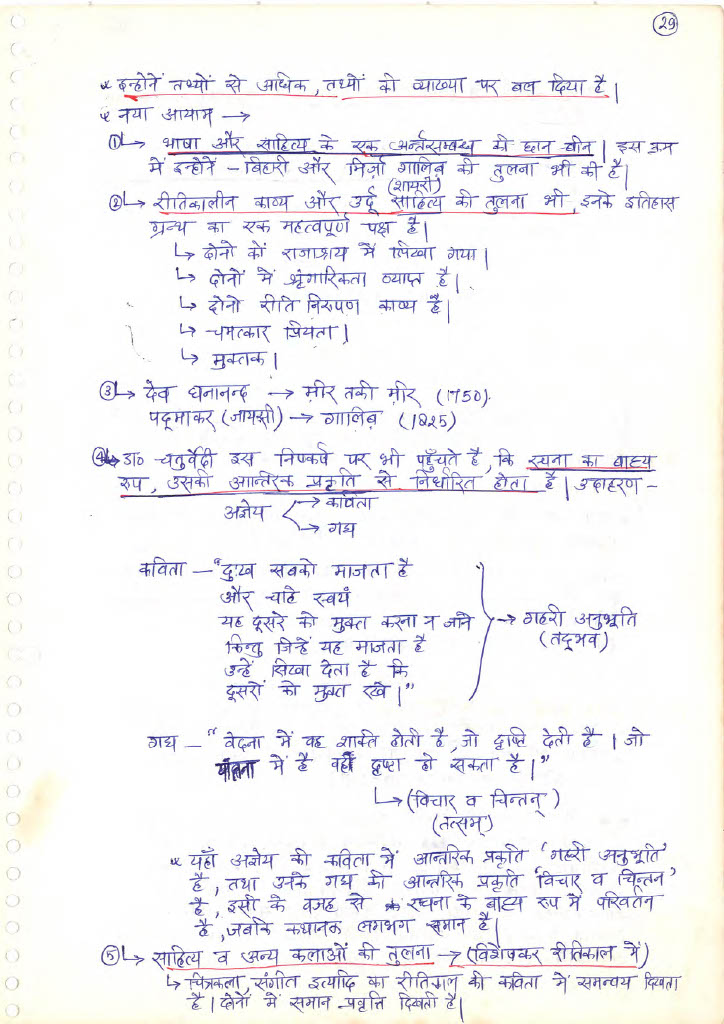 29
* इन्होनें तथ्यों से अधिक, तथ्यों की व्याख्या पर बल दिया है|
* नया आयाम →
① ↳ भाषा और साहित्य के एक अर्न्तसम्बन्ध की छान बीन| इस क्रम
में इन्होनें - बिहारी और मिर्ज़ा गालिब़ की तुलना भी की है|
(शायरी)
② ↳ रीतिकालीन काव्य और उर्दू साहित्य की तुलना भी, इनके इतिहास
ग्रन्थ का एक महत्वपूर्ण पक्ष है|
↳ दोनो कों राजाश्रय में लिखा गया|
↳ दोनों में श्रृंगारिकता व्याप्त है|
↳ दोनो रीति निरुपण काव्य है|
↳ चमत्कार प्रियता|
↳ मुक्तक|
③ ↳ देव घनानन्द → मीर तकी मीर (1750).
पद्माकर (जायसी) → गालिब़ (1825)
④ ↳ डा० चतुर्वेदी इस निष्कर्ष पर भी पहुँचते है, कि रचना का बाह्य
रूप, उसकी आन्तरिक प्रकृति से निर्धारित होता है| उदाहरण -
अज्ञेय → कविता
→ गद्य
कविता - "दुःख सबको माजता है
और चाहे स्वयं
यह दूसरे को मुक्त करना न जाने
किन्तु जिन्हें यह माजता है
उन्हें सिखा देता है कि
दूसरों को मुक्त रखे|"
→ गहरी अनुभूति
(तद्भव)
गद्य - "वेदना में वह शक्ति होती है, जो दृष्टि देती है | जो
यातना में है वही दृष्टा हो सकता है|"
↳ (विचार व चिन्तन्)
(तत्सम्)
* यहाँ अज्ञेय की कविता में आन्तरिक प्रकृति 'गहरी अनुभूति'
है, तथा उनके गद्य की आन्तरिक प्रकृति 'विचार व चिन्तन'
है, इसी के वजह से रचना के बाह्य रूप में परिवर्तन
है, जबकि कथानक लगभग समान है|
⑤ ↳ साहित्य व अन्य कलाओं की तुलना → (विशेषकर रीतिकाल में)
↳ चित्रकला, संगीत इत्यादि का रीतिकाल की कविता में समन्वय दिखता
है| दोनों में समान प्रवृत्ति दिखती है|